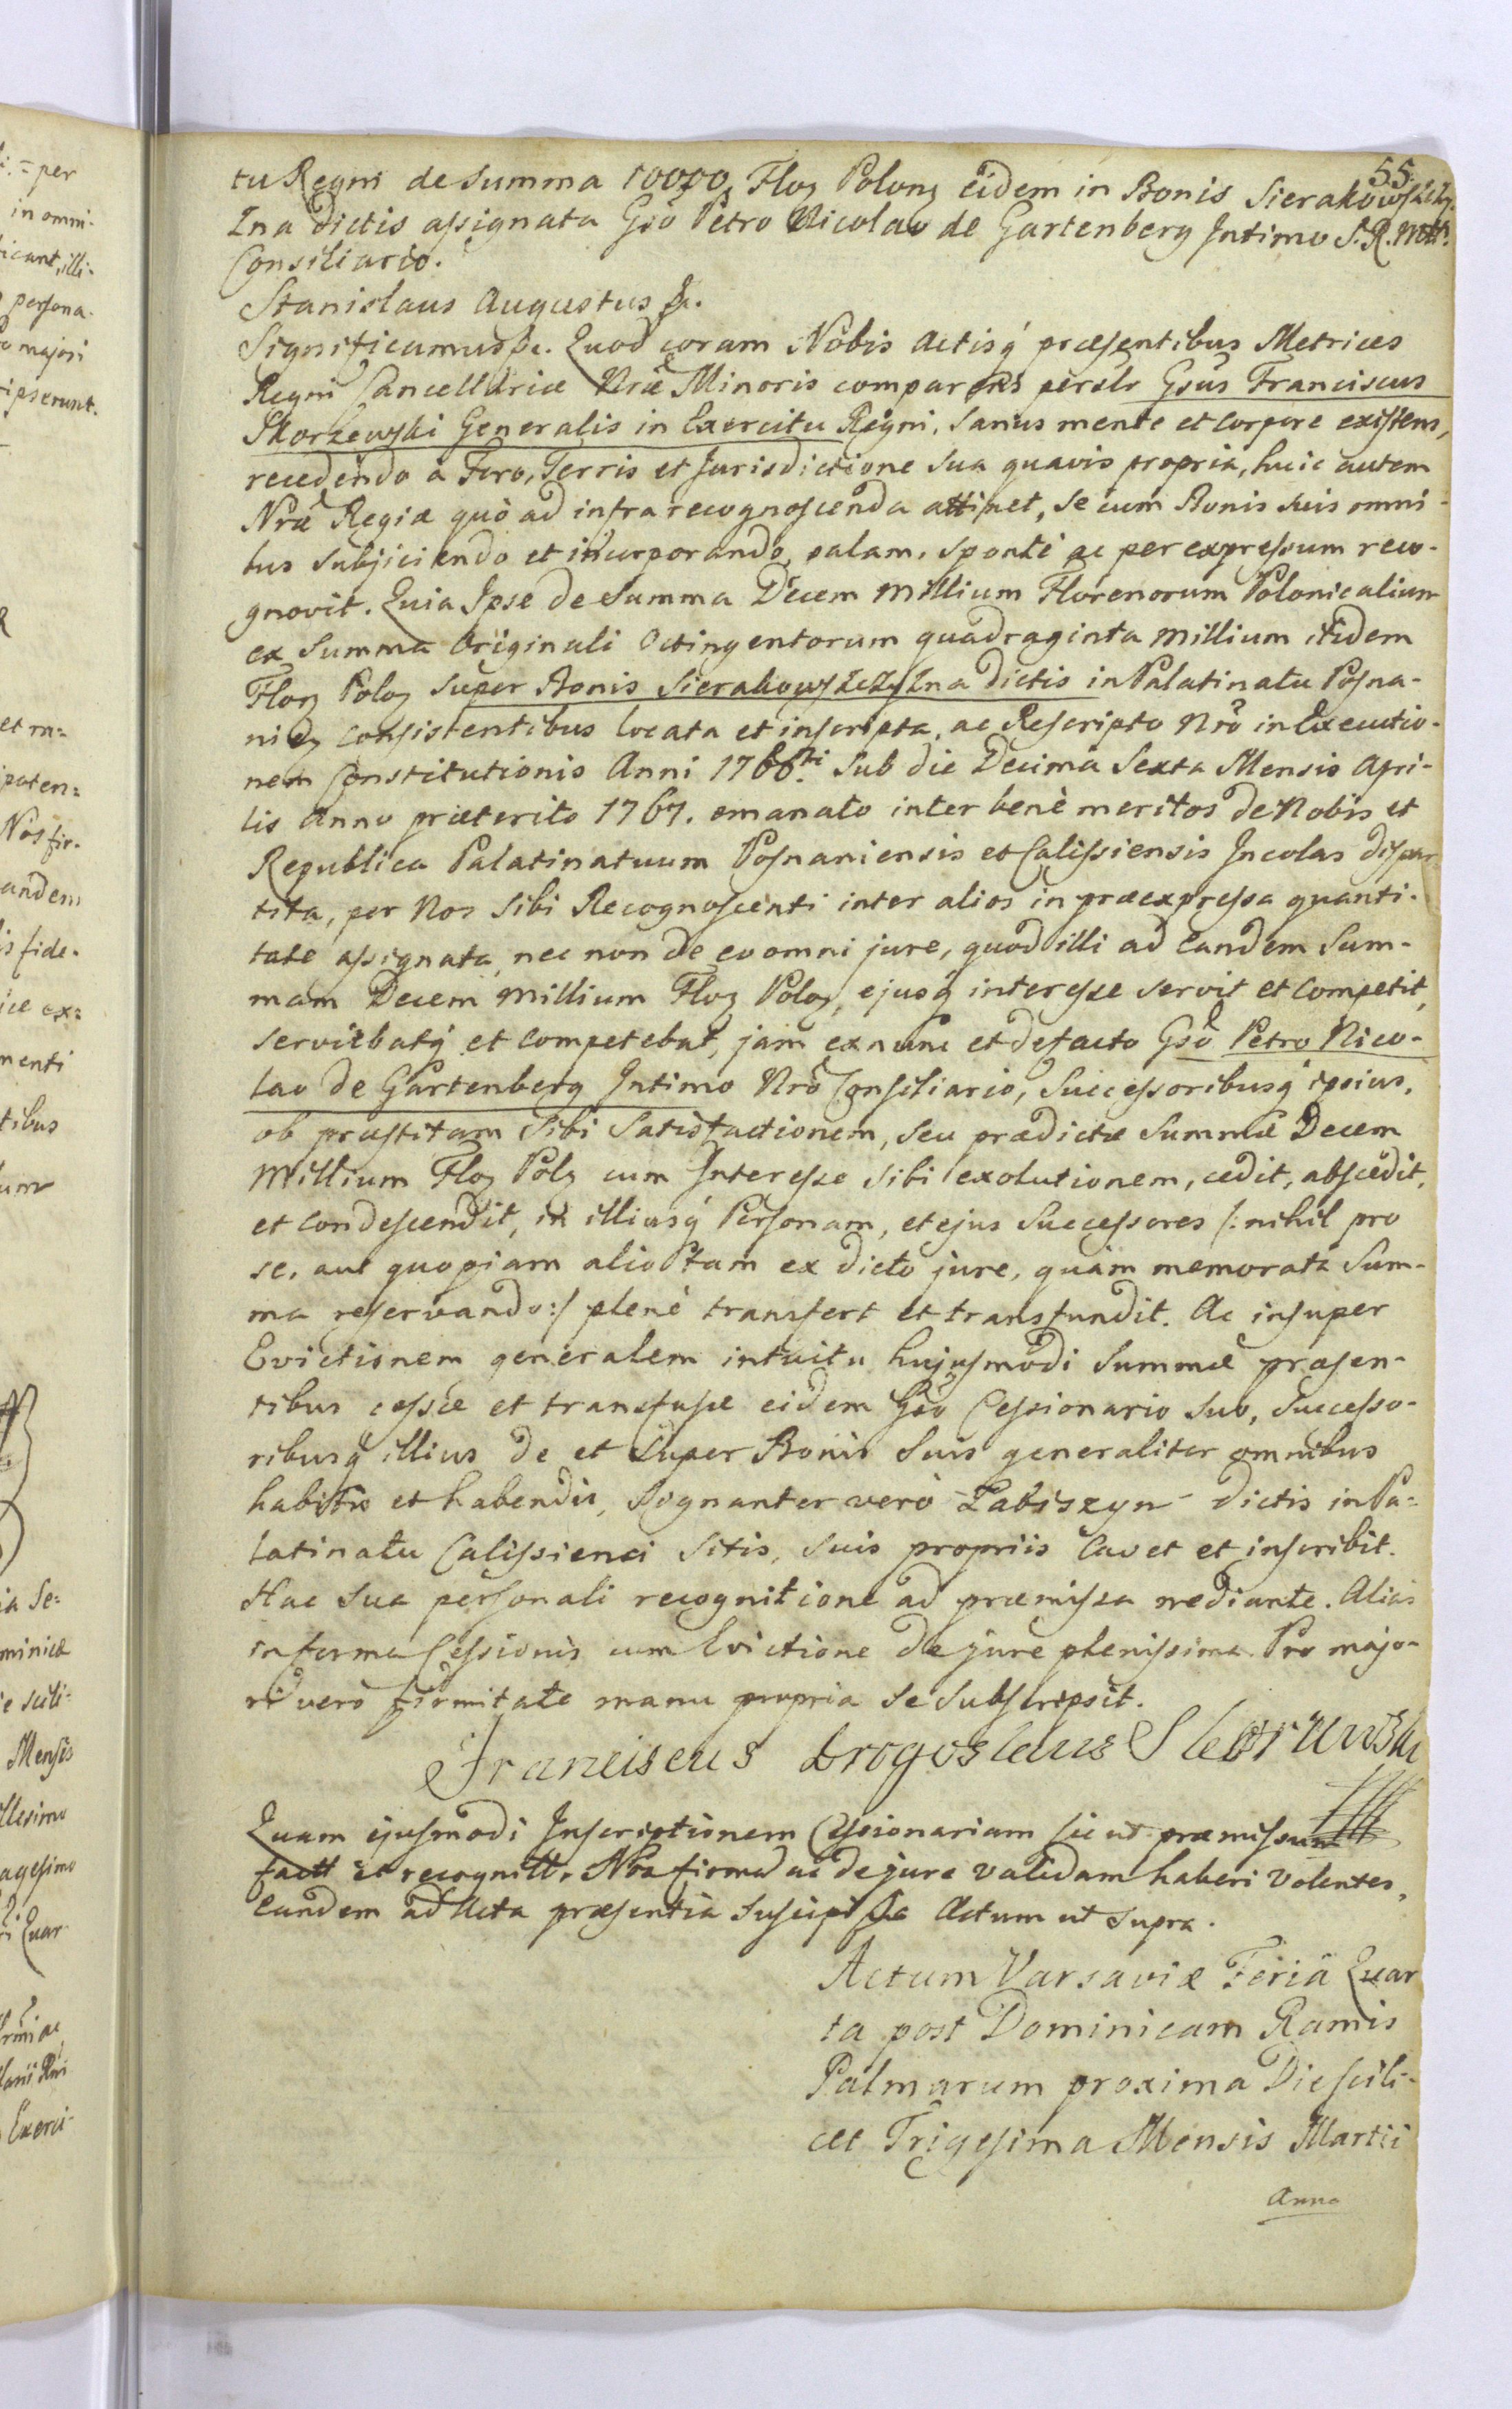 55.
tu Regni de Summa 10000 Floz Polonz eidem in Bonis Sierakowszczy
zna dictis assignata Gso Petro Nicolao de Gartenberg Intimo S. R. Mttis
Consiliario.
Stanislaus Augustus &c.
Significamus &c. Quod coram Nobis Actisq præsentibus Metrices
Regni Cancellariæ Nræ Minoris comparens persolr Gsus Franciscus
Skorzewski Generalis in Exercitu Regni, sanus mente et corpore existens,
recedendo a Foro, Terris et Jurisdictione sua quavis propria, huic autem
Nræ Regiæ quò ad infra recognoscenda attinet, se cum Bonis suis omni-
bus subjiciendo et incorporando, palam, sponte ac per expressum reco-
gnovit. Quia Ipse de Summa Decem Millium Florenorum Polonicalium
ex Summa Originali Octingentorum quadraginta Millium itidem
Floz Poloz super Bonis Sierakowszczyzna dictis in Palatinatu Posna-
niez consistentibus locata et inscripta, ac Rescripto Nro in Executio-
nem Constitutionis Anni 1766ti sub die Decima Sexta Mensis Apri-
lis Anno præterito 1767. emanato inter benè meritos de Nobis et
Republica Palatinatuum Posnaniensis et Calissiensis Incolas dispar
tita, per Nos Sibi Recognoscenti inter alios in præexpressa quanti-
tate assignata, nec non de eo omni jure, quod illi ad eandem Sum-
mam Decem Millium Floz Poloz, ejusq interesse servit et competit,
serviebatq et competebat, jam ex nunc et de facto Gso Petro Nico-
lao de Gartenberg Intimo Nro Consiliario, Successoribusq ipsius,
ob præstitam sibi Satisfactionem, seu prædictæ Summæ Decem
Millium Floz Polz cum Interesse sibi exolutionem, cedit, abscedit,
et condescendit, in illiusq Personam, et ejus Successores /: nihil pro
se, aut quopiam alio tam ex dicto jure, quàm memorata Sum-
ma reservando :/ plenè transfert et transfundit. Ac insuper
Evictionem generalem intuitu hujusmodi Summæ præsen-
tibus cessæ et transfusæ eidem Gso Cessionario suo, Successo-
ribusq illius de et super Bonis suis generaliter omnibus
habitis et habendis, signanter verò Łabiszyn dictis in Pa-
latinatu Calissiensi sitis, suis propriis cavet et inscribit.
Hac sua personali recognitione ad præmissa mediante. Alias
in forma Cessionis cum Evictione de jure plenissima. Pro majo-
ri verò firmitate manu propria se subscripsit.
Franciscus Drogoslaus Skorzewski
Quam ejusmodi Inscriptionem Cessionariam sic ut præmissum
factt et recognitt. Nos firmā ac de jure validam haberi volentes,
Eandem ad Acta præsentia suscipi &c Actum ut supra.
Actum Varsaviæ Feriâ Quar
ta post Dominicam Ramis
Palmarum proxima Die scili-
cet Trigesima Mensis Martii
Anno